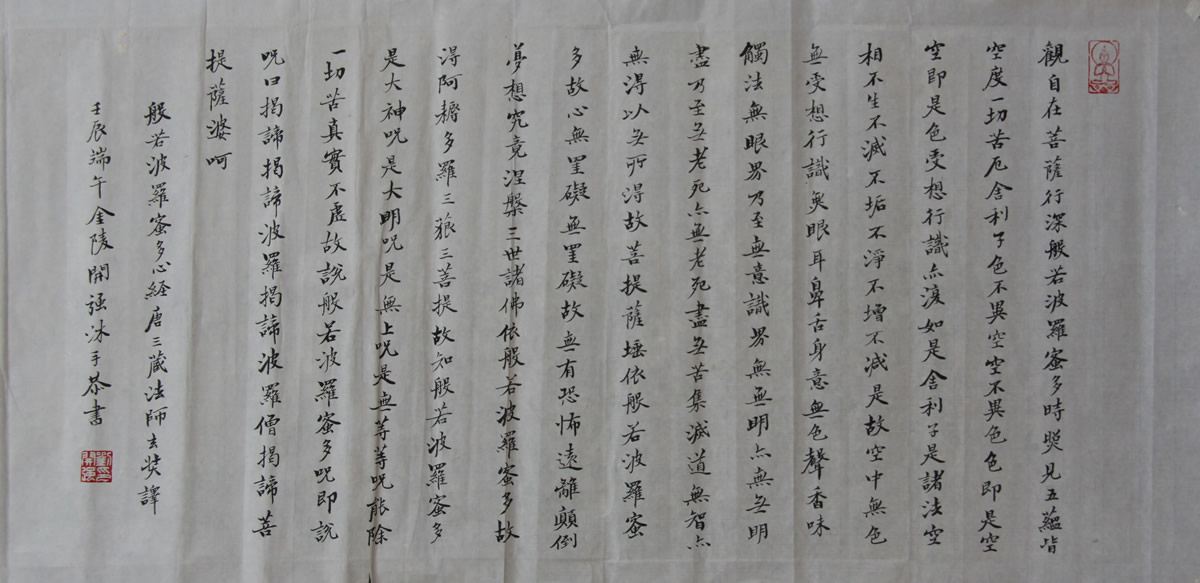 觀自在菩薩行深般若波羅蜜多時照見五蘊皆
空度一切苦厄舍利子色不異空空不異色色即是空
空即是色受想行識亦復如是舍利子是諸法空
相不生不滅不垢不淨不增不減是故空中無色
無受想行識無眼耳鼻舌身意無色聲香味
觸法無眼界乃至無意識界無無明亦無無明
盡乃至無老死亦無老死盡無苦集滅道無智亦
無得以無所得故菩提薩埵依般若波羅蜜
多故心無罣礙無罣礙故無有恐怖遠離顛倒
夢想究竟涅槃三世諸佛依般若波羅蜜多故
得阿耨多羅三藐三菩提故知般若波羅蜜多
是大神呪是大明呪是無上呪是無等等呪能除
一切苦真實不虛故說般若波羅蜜多呪即說
呪曰揭諦揭諦波羅揭諦波羅僧揭諦菩
提薩婆呵
般若波羅蜜多心經唐三藏法師玄奘譯
壬辰端午金陵開強沐手恭書
劉印開強